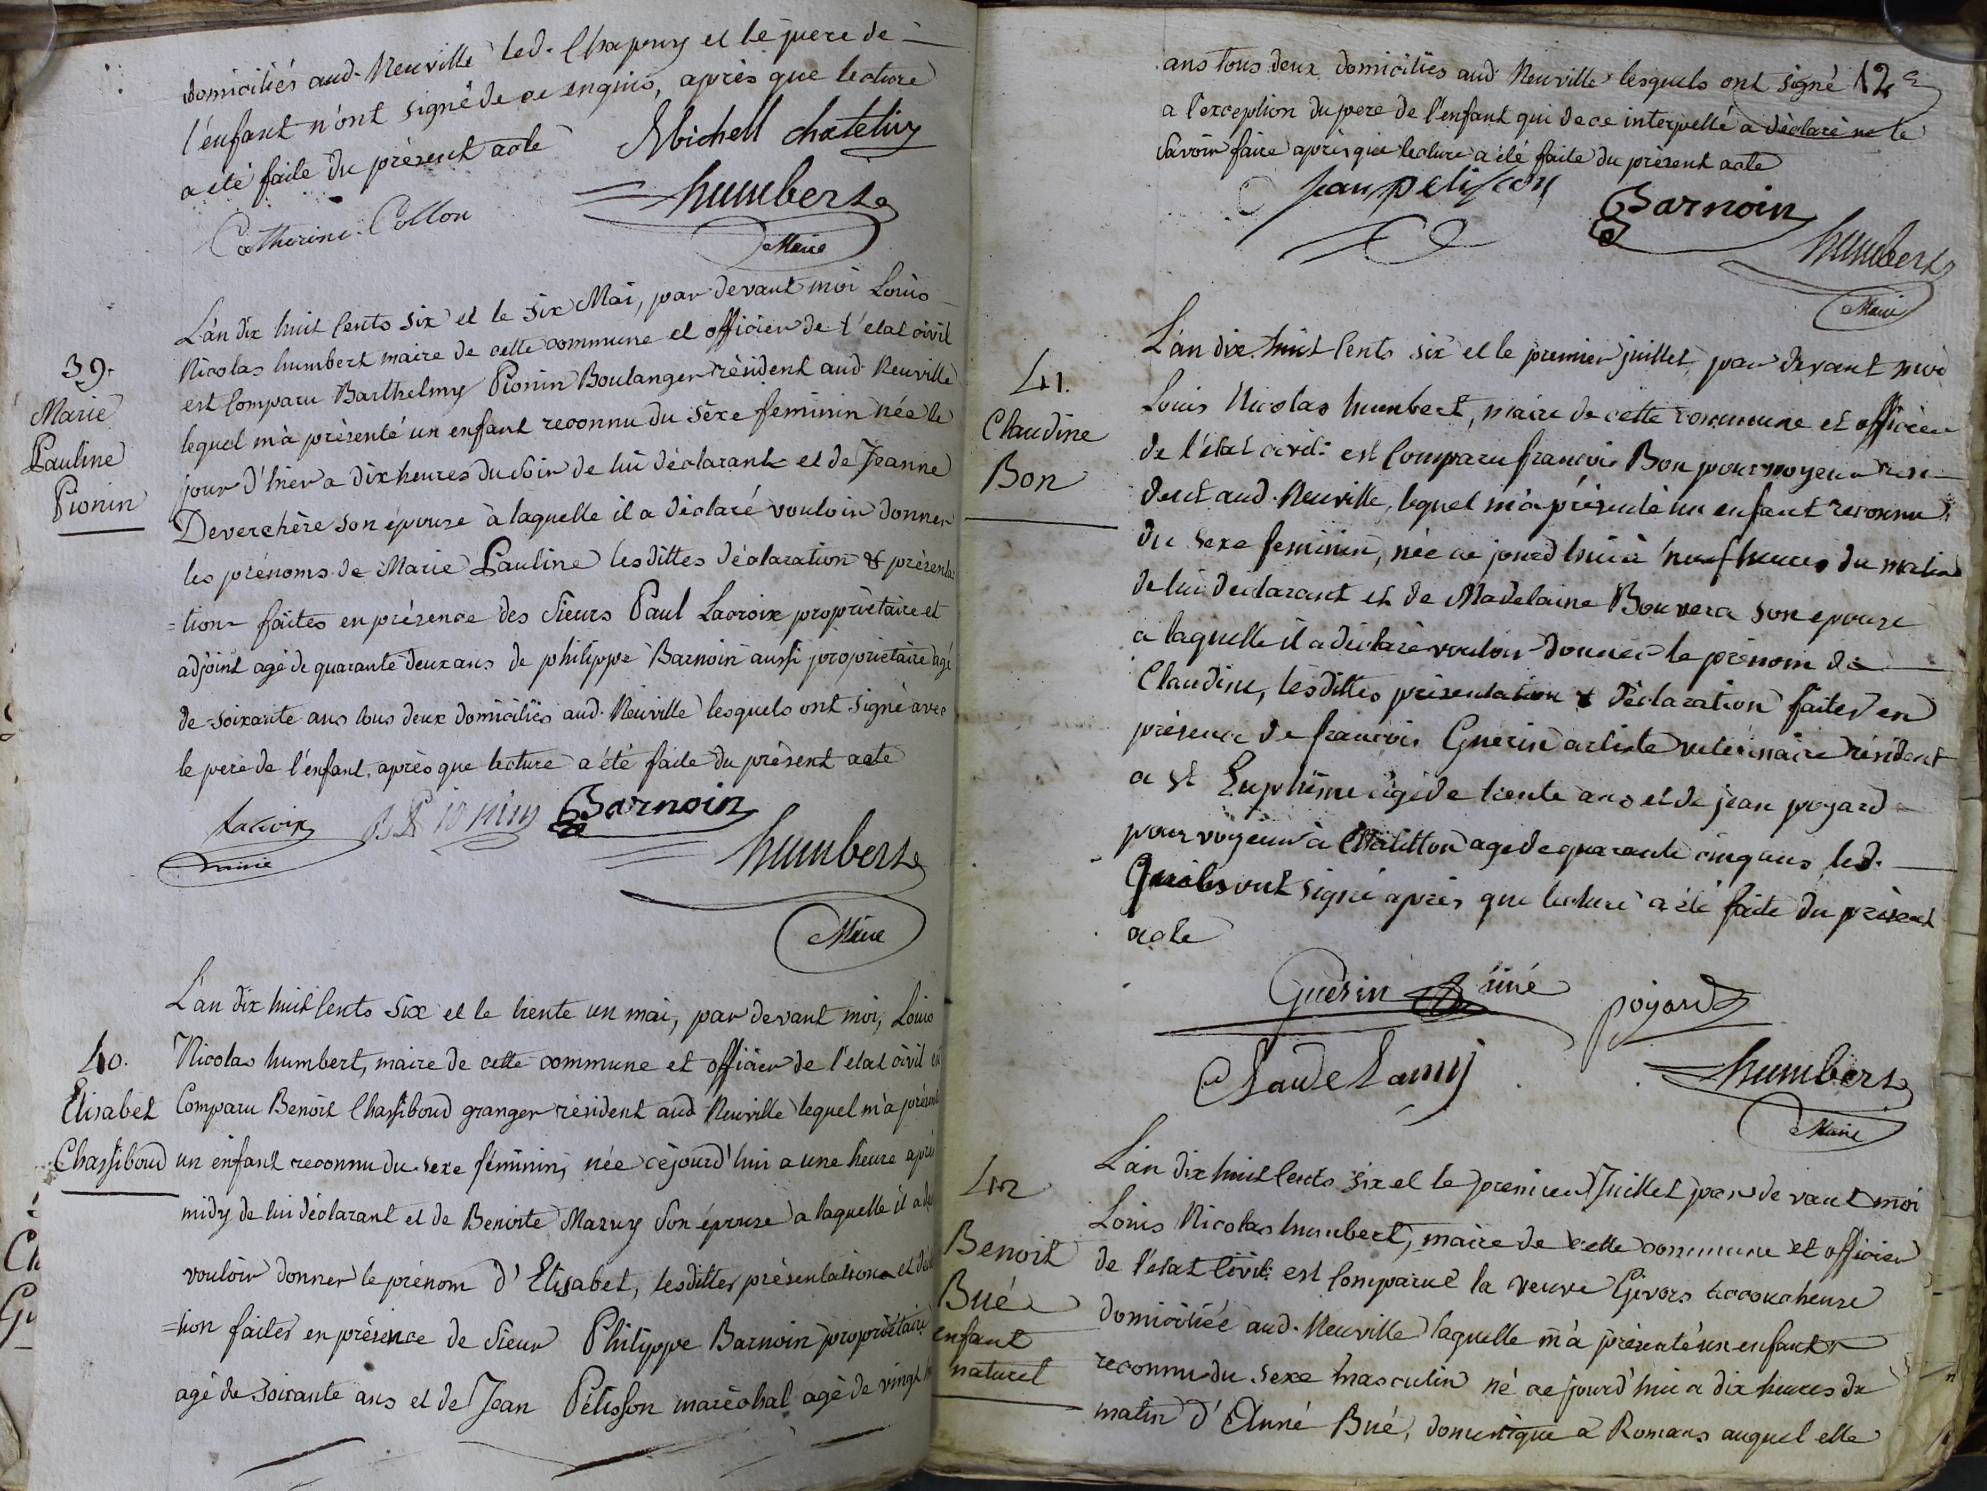 domiciliés aud. Neuville led. Chapuy et le pere de
l'enfant n'ont signé de ce enquis, après que lecture
a été faite du présent acte
Michell chateluy
Catherine Collon
humbert
Maire
39.
Marie
Pauline
Pionin
L'an dix huit Cents Six et le Six Mai, par devant moi Louis
Nicolas humbert maire de cette commune et officier de l'etat civil
est Comparu Barthelmy Pionin Boulanger résident aud Neuville
lequel m'a présenté un enfant reconnu du sèxe feminin née le
jour d'hier a dix heures du Soir de lui déclarant et de Jeanne
Deverchère son épouse à laquelle il a déclaré vouloir donner
les prénoms de Marie Pauline lesdittes déclaration & présenta
=tion faites en présence des Sieurs Paul Lacroix propriétaire et
adjoint agé de quarante deux ans de philippe Barnoin aussi propriétaire agé
de soixante ans tous deux domiciliés aud. Neuville lesquels ont signé avec
le pere de l'enfant, après que lecture a été faite du présent acte
Lacroix
B Pionin
Barnoin
humbert
Maire
40.
Elisabet
Chassiboud
L'an dix huit Cents Six et le trente un mai, par devant moi, Louis
Nicolas humbert, maire de cette commune et officier de l'etat civil
Comparu Benoit Chassiboud granger résident aud Neuville lequel m'a présent
un enfant reconnu du sexe féminin, née cejourd'hui a une heure aprè
midy de lui déclarant et de Benoite Mazuy Son épouse a laquelle il a
vouloir donner le prénom d'Elisabet, lesdittes présentation et
=tion faites en présence de Sieur Philippe Barnoin propriétaire
agé de Soixante ans et de Jean Pelisson maréchal agé de vingt
ans tous deux domiciliés aud Neuville lesquels ont signé 12
a l'exception du pere de l'enfant qui de ce interpellé a déclaré ne le
Savoir faire après que lecture a été faite du présent acte
Jean pelisson
Barnoin
humbert
Maire
41.
Claudine
Bon
L'an dix huit Cents six et le premier juillet par devant moi
Louis Nicolas humbert, maire de cette commune et officier
de l'état civil est Comparu francois Bon pourvoyeur rési
dent aud. Neuville, lequel m'a présenté un enfant reconnu
du sexe feminin, née ce jourd'hui à neuf heures du matin
de lui declarant et de Madelaine Bouvera son epouse
a laquelle il a déclaré vouloir donner le prénom de
Claudine, lesdittes présentation & déclaration faites en
présence de francois Guerin artiste vétérinaire résident
a St Euphême agé de trente ans et de jean poyard
pourvoyeur à Chatillon agé de quarante cinq ans led.
ont signé après que lecture a été faite du présent
acte
Guérin ainé
poyard
Claude Lamy
humbert
Maire
42
Benoit
Bué
enfant
naturel
L'an dix huit Cents Six et le premier Juillet par devant moi
Louis Nicolas humbert, maire de cette commune et officier
de l'état Civil est Comparue la veuve Givors accoucheuse
domiciliée aud. Neuville laquelle m'a présenté un enfant
reconnu du sexe masculin né ce jourd'hui a dix heures du
matin d'Anne Bué, domestique a Romans auquel elle